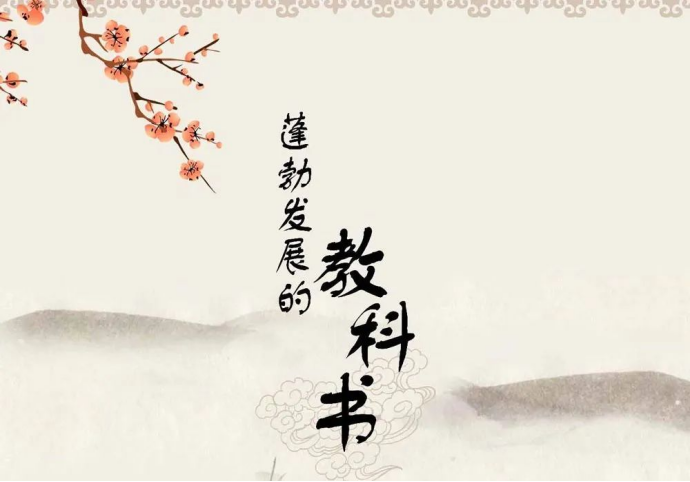 蓬勃发展的
教科书